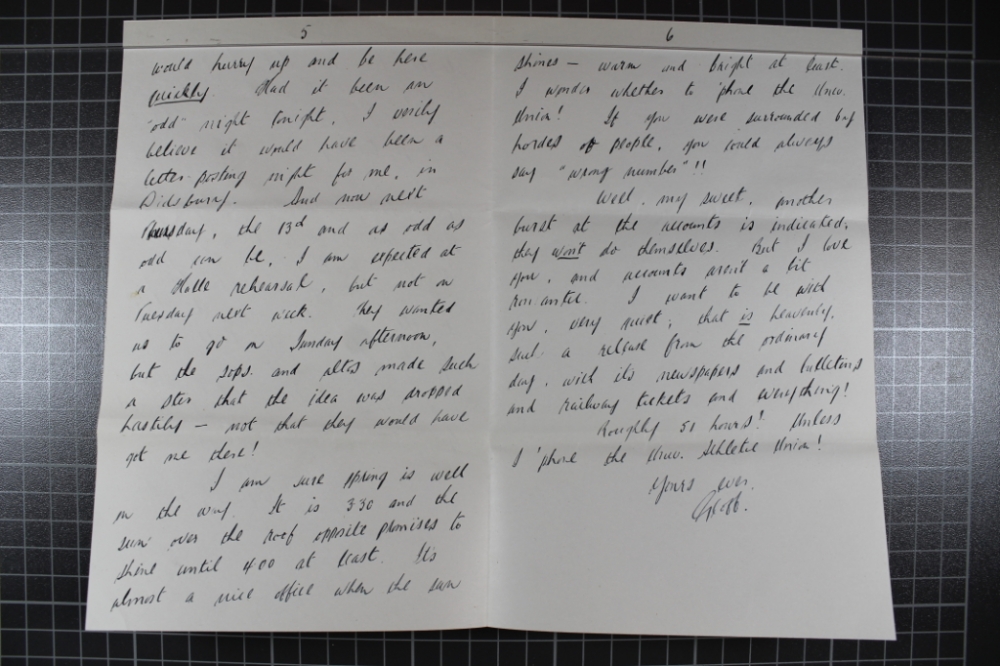 5
would hurry up and be here
quickly. Had it been an
"odd" night tonight, I verily
believe it would have been a
letter-posting night for me, in
Didsbury. And now next
Thursday, the 13th and as odd as
odd can be, I am expected at
a Halle rehearsal, but not on
Tuesday next week. They wanted
us to go on Sunday afternoon,
but the sops. and altos made such
a stir that the idea was dropped
hastily — not that they would have
got me there!
I am sure spring is well
on the way. It is 3.30 and the
sun over the roof opposite promises to
shine until 4.00 at least. It's
almost a nice office when the sun
6
shines — warm and bright at least.
I wonder whether to 'phone the Univ.
Union! If you were surrounded by
hordes of people, you could always
say "wrong number"!!
Well, my sweet, another
burst at the accounts is indicated;
they won't do themselves. But I love
you, and accounts aren't a bit
romantic. I want to be with
you, very quiet; that is heavenly,
such a release from the ordinary
day, with its newspapers and bulletins
and railway tickets and everything!
Roughly 51 hours! Unless
I 'phone the Univ. Athletic Union!
Yours ever,
Geoff.